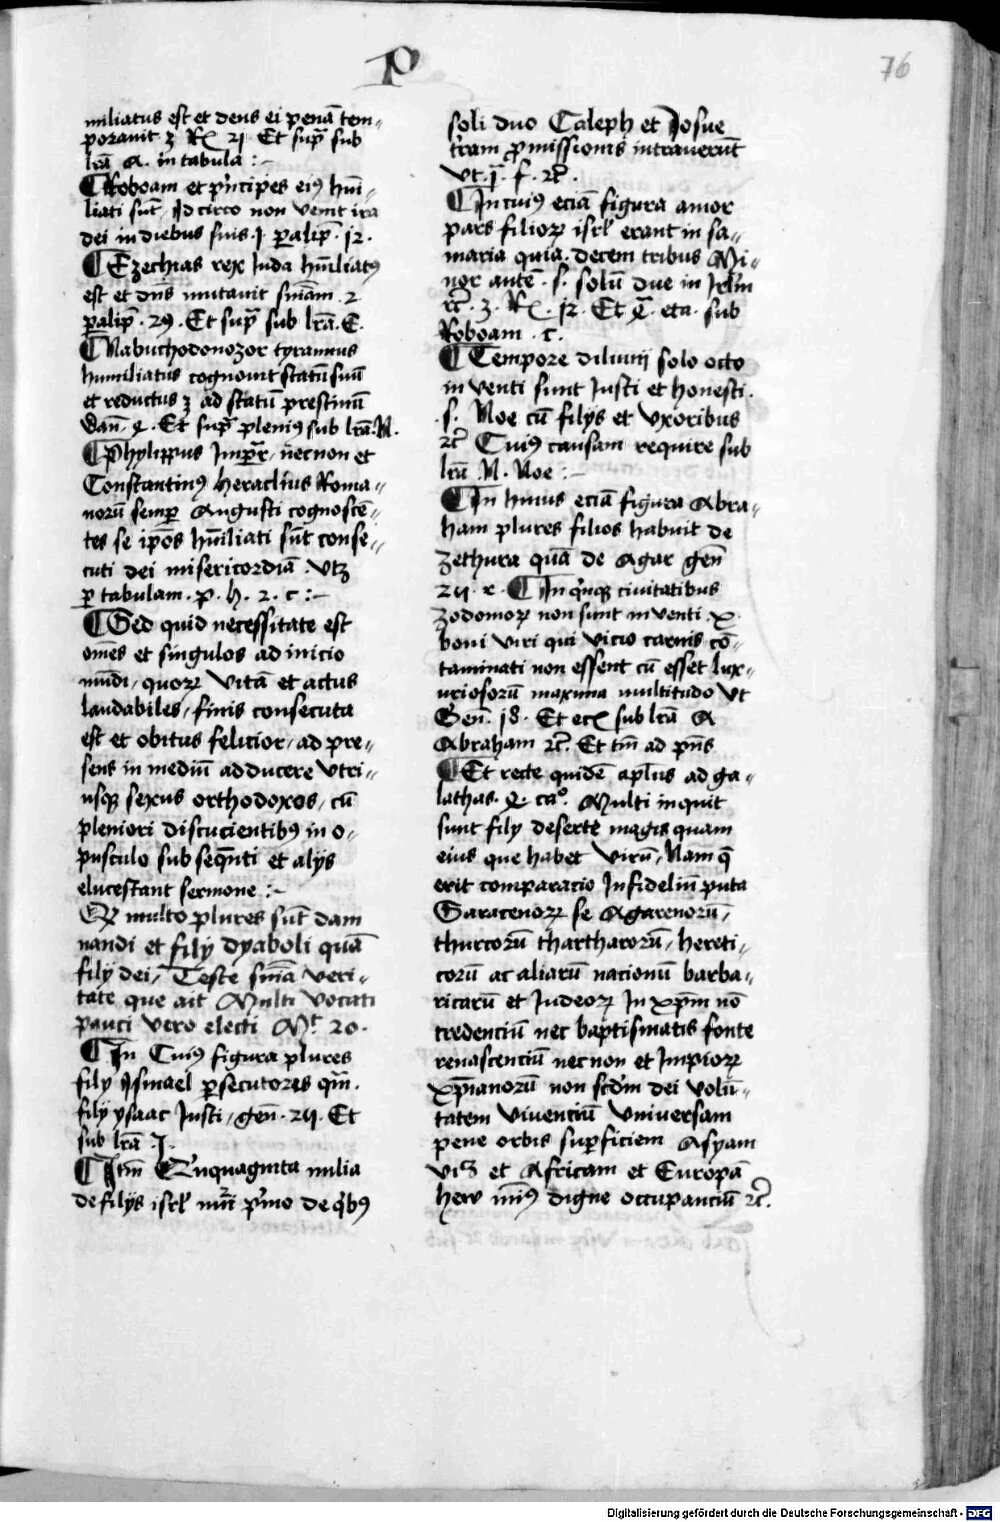 P
76
miliatus est et deus ei penā tem„
porauit 3 Rͨ 21 Et supᵃ sub
lrā A. in tabula :~
¶ Roboam et pͥncipes eiꝰ hūi„
liati sūt, Idcirco non venit ira
dei in diebus suis. I paℓlip̄. 12.
¶ Ezechias rex Iuda hūiliatꝰ
est et dn̄s mutauit sn̄iam. 2.
paℓlip̄. 29. Et supᵃ sub lrā. E.
¶ Nabuchodonozor tyrannus
humiliatus cognouit statū suū
et reductus ad statū prestinū
Dan̄. 4. Et supᵃ plenius sub lrā. N.
¶ Phylippus Impᵃr, necnon et
Constantinꝰ Heraclius Roma„
norū semꝑ Augusti cognoscē„
tes se ip̄os hūiliati sūt conse„
cuti dei misericordiā. vtꝫ
ꝑ tabulam. p. h. 2. c :~
¶ Sed quid necessitate est
om̄es et singulos ad inicio
mūdi, quoꝝ vitā et actus
laudabiles, finis consecuta
est et obitus felicior, ad pre„
sens in mediū adducere vtri„
usqꝫ sexus orthodoxos, cū
pleniori discucientibꝰ in o„
pusculo subseqn̄ti et alijs
elucestant sermone :~
multo plures sūt dam
nandi et filij dyaboli quā
filij dei, Teste sūma veri„
tate que ait Multi vocati
pauci vero electi Mᵗ. 20.
¶ In Cuiꝰ figura plures
filij Ismael ꝑsecutores qm̄.
filij ysaac Iusti, gen̄. 21. Et
sub lrā .I.
¶ Itm̄ Quīquaginta milia
de filijs isrl̄ pͥmo de qͥbꝰ
soli duo Caleph et Iosue
t̄ram ꝓmissionis intrauerūt
vt. . f. ⁊c̄.
¶ In cuiꝰ eciā figura amor
pars filioꝝ isrl̄ erant in sa„
maria quia decem tribus Mi„
nor autē. s. solū due in Irl̄m
⁊c̄. 3. Rͨ. 12. Et eta. sub
Roboam. c.
¶ Tempore diluuij solo octo
inventi sunt Iusti et honesti.
.s. Noe cū filijs et vxoribus
⁊c̄ Cuiꝰ causam require sub
lrā N. Noe :~
¶ In huius eciā figura Abra„
ham plures filios habuit de
zethura quā de Agar gen̄
¶ In qͥnqꝫ ciuitatibus
zodomoꝝ non sunt inventi .x.
boni viri qui vicio carnis cō„
taminati non essent cū esset lux„
uriosorū maxima multitudo vt
Gen̄. 18. Et sub lrā A
Abraham ⁊c̄. Et tm̄ ad pn̄s
¶ Et recte quidē apl̄us ad ga„
lathas. 4. caᵒ. Multi inquit
sunt filij deserte magis quam
eius que habet virū, Nam q̄
erit comparacio Infideliū puta
Saracenoꝝ se Agarenorū,
thurcorū thartharorū, hereti„
corū ac aliarū nacionū barba„
ricarū et Iudeoꝝ In xp̄m nō
credenciū nec baptismatis fonte
renascenciū necnon et Impioꝝ
xp̄ianorū non scd̄m dei volū„
tatem viuenciū vniuersam
pene orbis suꝑficiem Asyam
et Africam et Europā
hew digne occupanciū ⁊c̄.
Digitalisierung gefördert durch die Deutsche Forschungsgemeinschaft - DFG